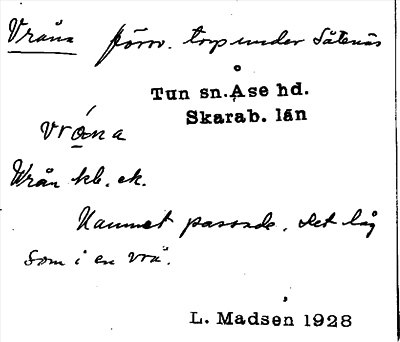 Vråna förv. torp under Såtenäs
Tun sn. Åse hd.
Skarab. län
vrɔ́na
Wrån kb. ek.
Namnet passade, det låg
som i en vrå.
L. Madsen 1928